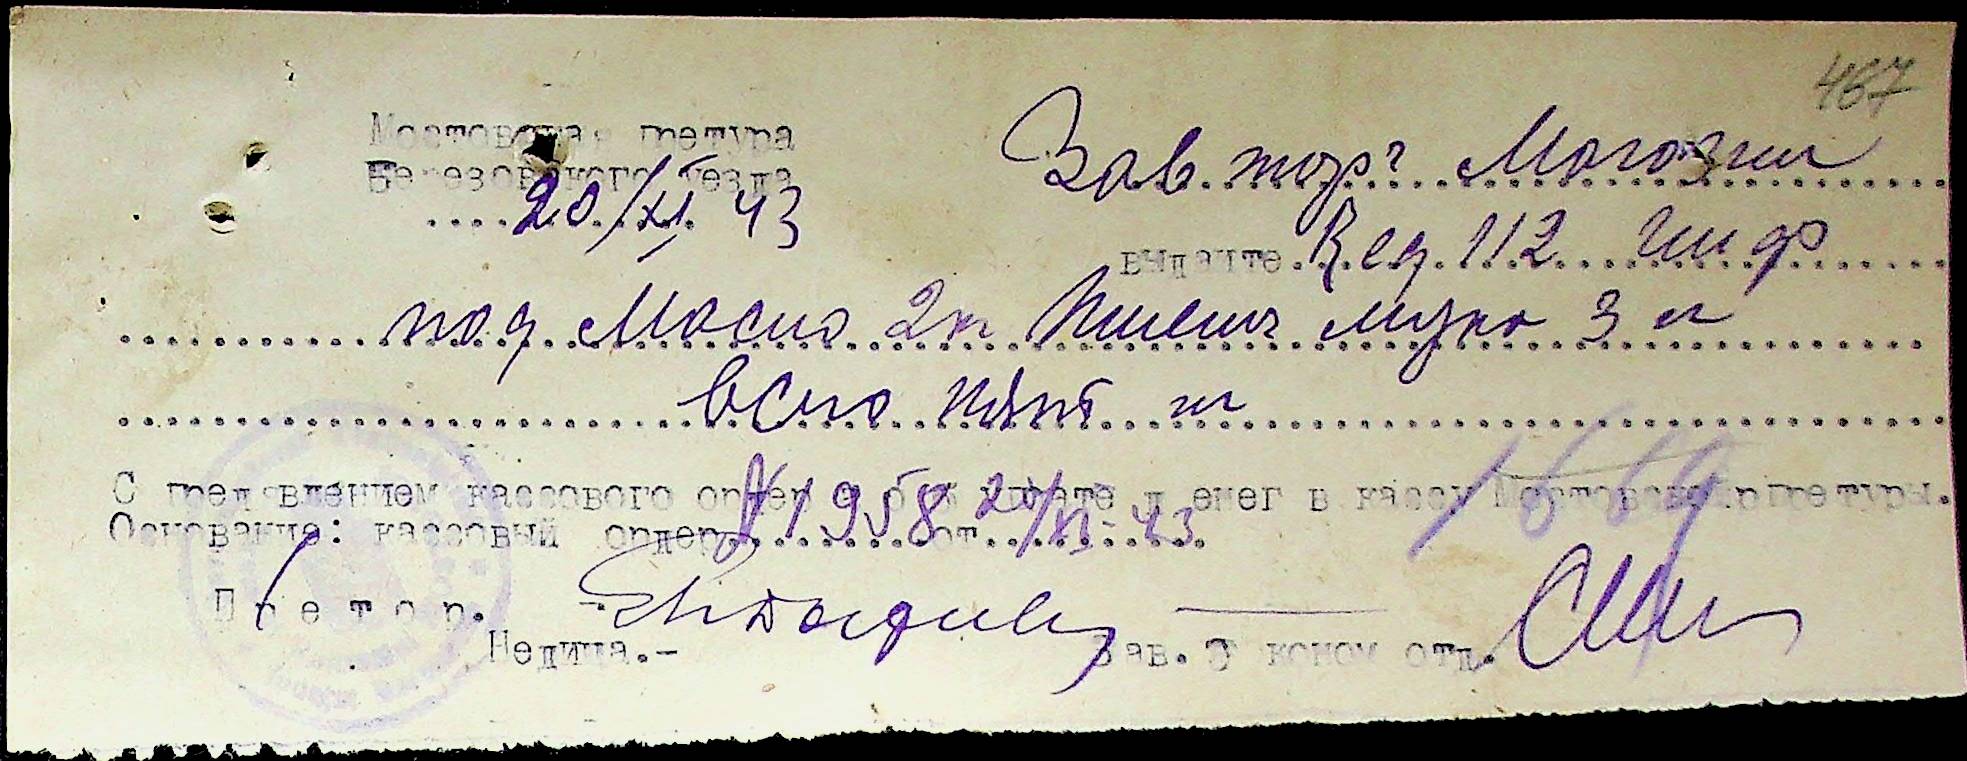 467
Мостовская претура
Березовского уезда
20/XI 43
Зав. торг Могозин
выдайте Ред. 112
под Масло 2 кг Пшенич муко 3 кг
всио пять кг
С пред'явлением кассового ордера об уплате денег в кассу Мостовской претуры.
Основание: кассовый ордер N 1958 от 2/XI-43
1669
Претор.
Недица.-
Зав. Эконом отд.